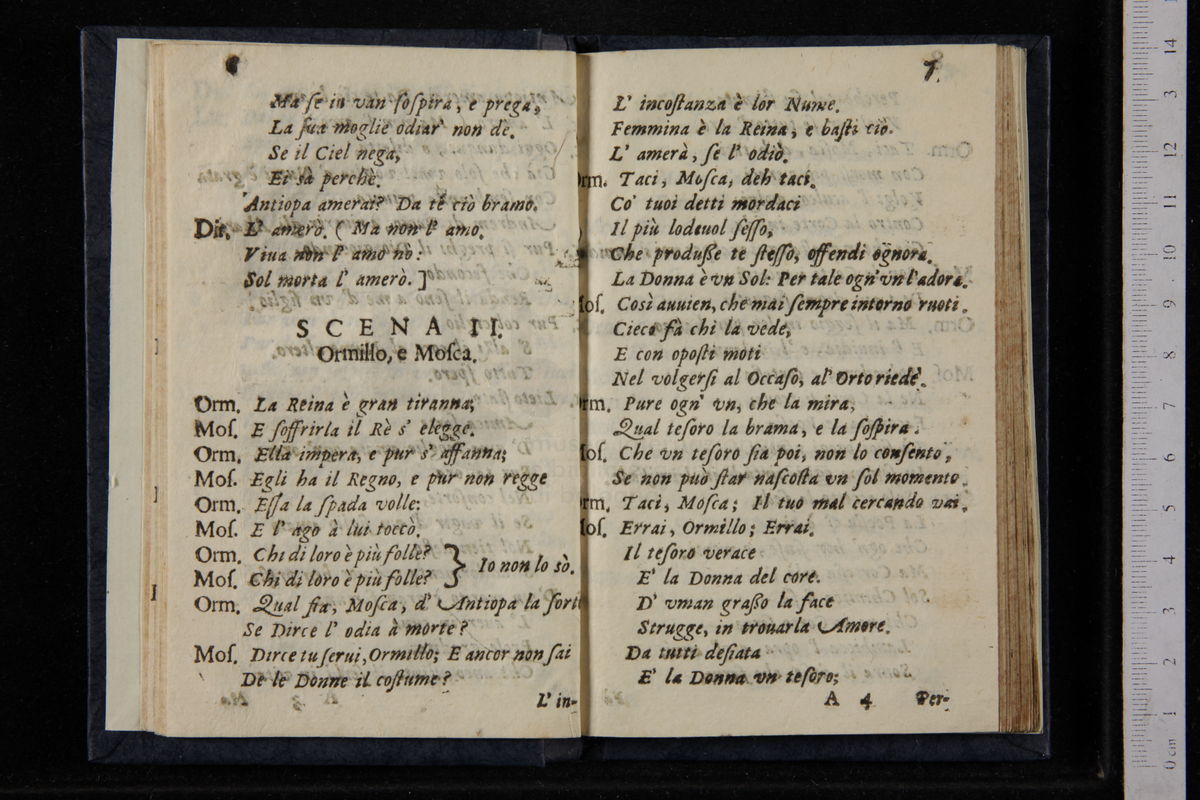 Ma se in van ſoſpira, e prega,
La ſua moglie odiar' non dè.
Se il Ciel nega,
Ei sà perchè.
Antiopa amerai? Da tè ciò bramo.
Dir. L' amerò. ( Ma non l' amo.
Viua non l' amo nò:
Sol morta l' amerò. ]
SCENA II.
Ormillo, e Moſca.
Orm. La Reina è gran tiranna;
Moſ. E ſoffrirla il Rè s' elegge.
Orm. Ella impera, e pur s' affanna;
Moſ. Egli ha il Regno, e pur non regge
Orm. Eſſa la ſpada volle:
Moſ. E l' ago à lui toccò.
Orm. Chi di loro è più folle?
Moſ. Chi di loro è più folle? } Io non lo sò.
Orm. Qual ſia, Moſca, d' Antiopa la ſorte
Se Dirce l' odia à morte?
Moſ. Dirce tu ſerui, Ormillo; E ancor non ſai
De le Donne il coſtume?
L' in-
7.
L' incoſtanza è lor Nume.
Femmina è la Reina, e baſti ciò.
L' amerà, ſe l' odiò.
Orm. Taci, Moſca, deh taci.
Co' tuoi detti mordaci
Il più lodeuol ſeſſo,
Che produße te ſteſſo, offendi ognora.
La Donna è vn Sol: Per tale ogn' vn l' adora.
Moſ. Così auuien, che mai ſempre intorno ruoti.
Cieco fà chi la vede,
E con opoſti moti
Nel volgerſi al Occaſo, al' Orto riede.
Orm. Pure ogn' vn, che la mira,
Qual teſoro la brama, e la ſoſpira.
Moſ. Che vn teſoro ſia poi, non lo conſento,
Se non può ſtar naſcoſta vn ſol momento.
Orm. Taci, Moſca; Il tuo mal cercando vai.
Moſ. Errai, Ormillo; Errai.
Il teſoro verace
E' la Donna del core.
D' vman graßo la face
Strugge, in trouarla Amore.
Da tutti deſiata
E' la Donna vn teſoro;
A 4 Per-